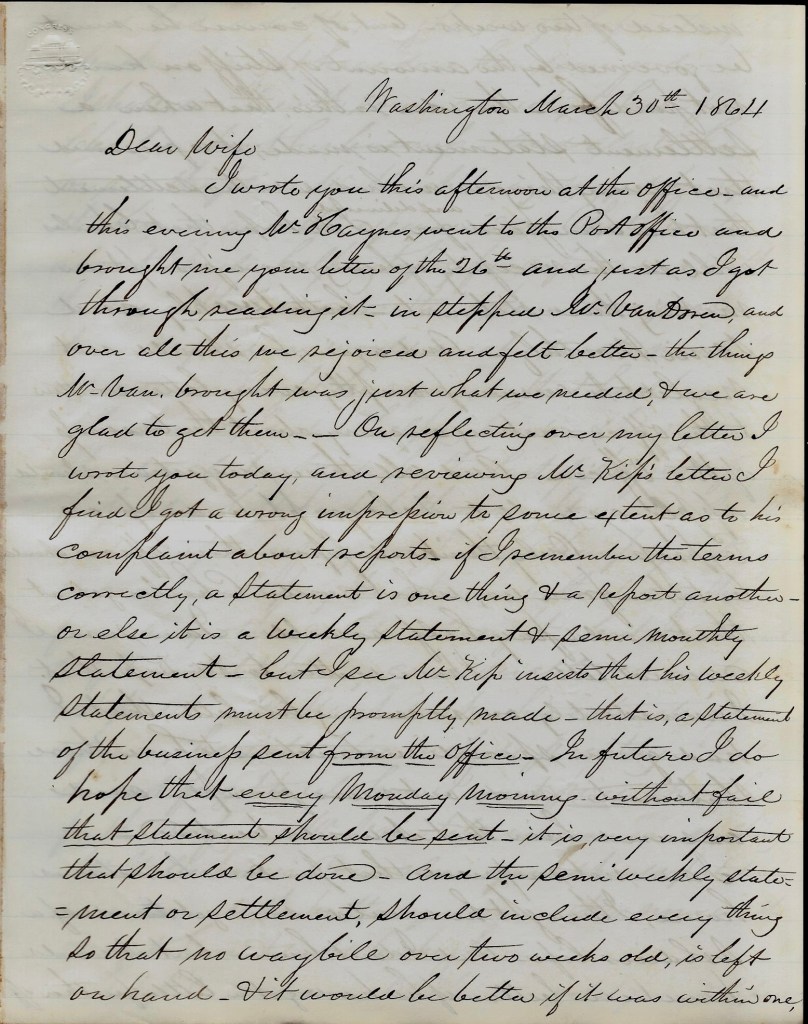 Washington March 30th 1864
Dear Wife
I wrote you this afternoon at the office – and
this evening Mr. Haynes went to the Post office and
brought me your letter of the 26th and just as I got
through reading it – in stepped Mr. VanDoren, and
over all this we rejoiced and felt better – the things
Mr. Van. brought was just what we needed, & we are
glad to get them – – On reflecting over my letter I
wrote you today, and reviewing Mr. Kip's letter I
find I got a wrong impression to some extent as to his
complaint about reports – if I remember the terms
correctly, a statement is one thing & a report another –
or else it is a weekly statement & semi monthly
statement – but I see Mr. Kip insists that his weekly
statements must be promptly made – that is, a statement
of the business sent from the office – In future I do
hope that every Monday morning without fail
that statement should be sent – it is, very important
that should be done – And the semi weekly state=
=ment or settlement, should include every thing
so that no waybill over two weeks old, is left
on hand – & it would be better if it was within one,